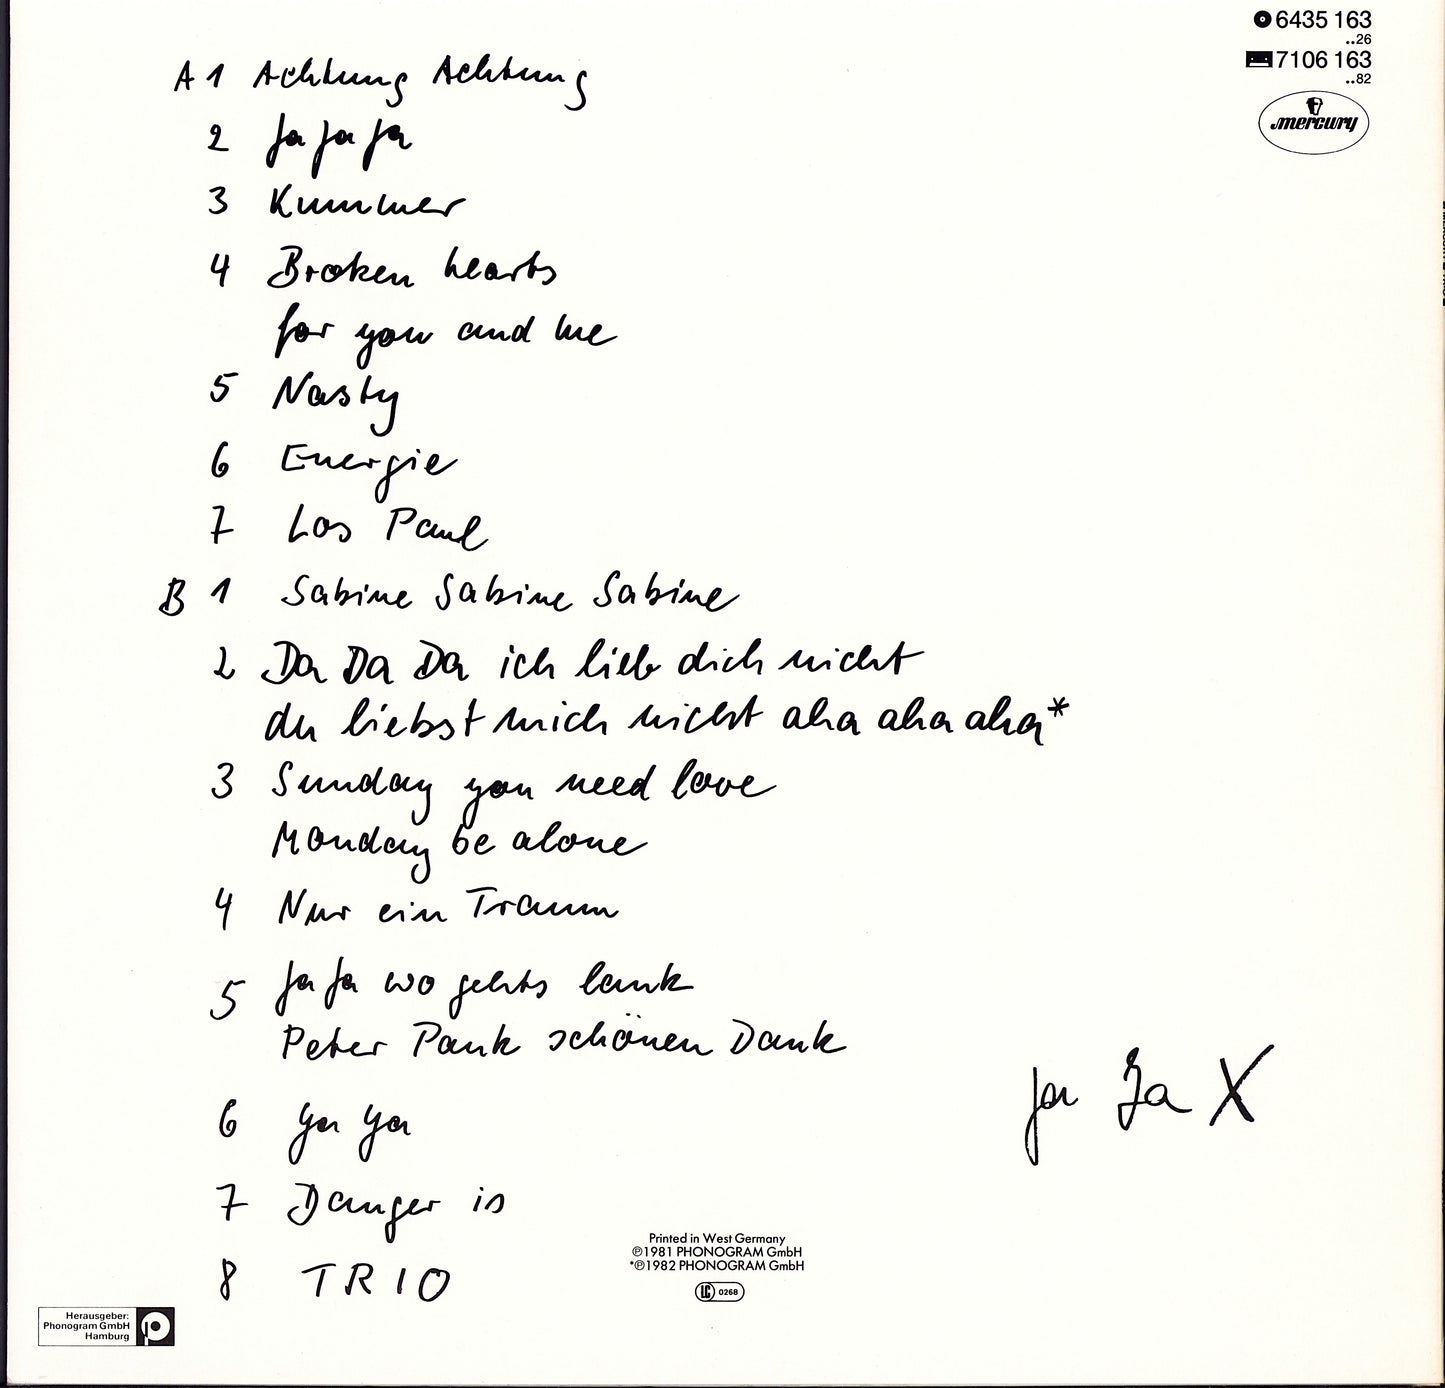 6435 163
..26
7106 163
..82
mercury
A 1 Achtung Achtung
2 Ja Ja Ja
3 Kummer
4 Broken hearts
for you and me
5 Nasty
6 Energie
7 Los Paul
B 1 Sabine Sabine Sabine
2 Da Da Da ich lieb dich nicht
du liebst mich nicht aha aha aha*
3 Sunday you need love
Monday be alone
4 Nur ein Traum
5 Ja Ja wo gehts lank
Peter Pank schönen Dank
6 Ya Ya
7 Danger is
8 TRIO
Ja Ja X
Printed in West Germany
℗1981 PHONOGRAM GmbH
*℗1982 PHONOGRAM GmbH
LC 0268
Herausgeber:
Phonogram GmbH
Hamburg
p